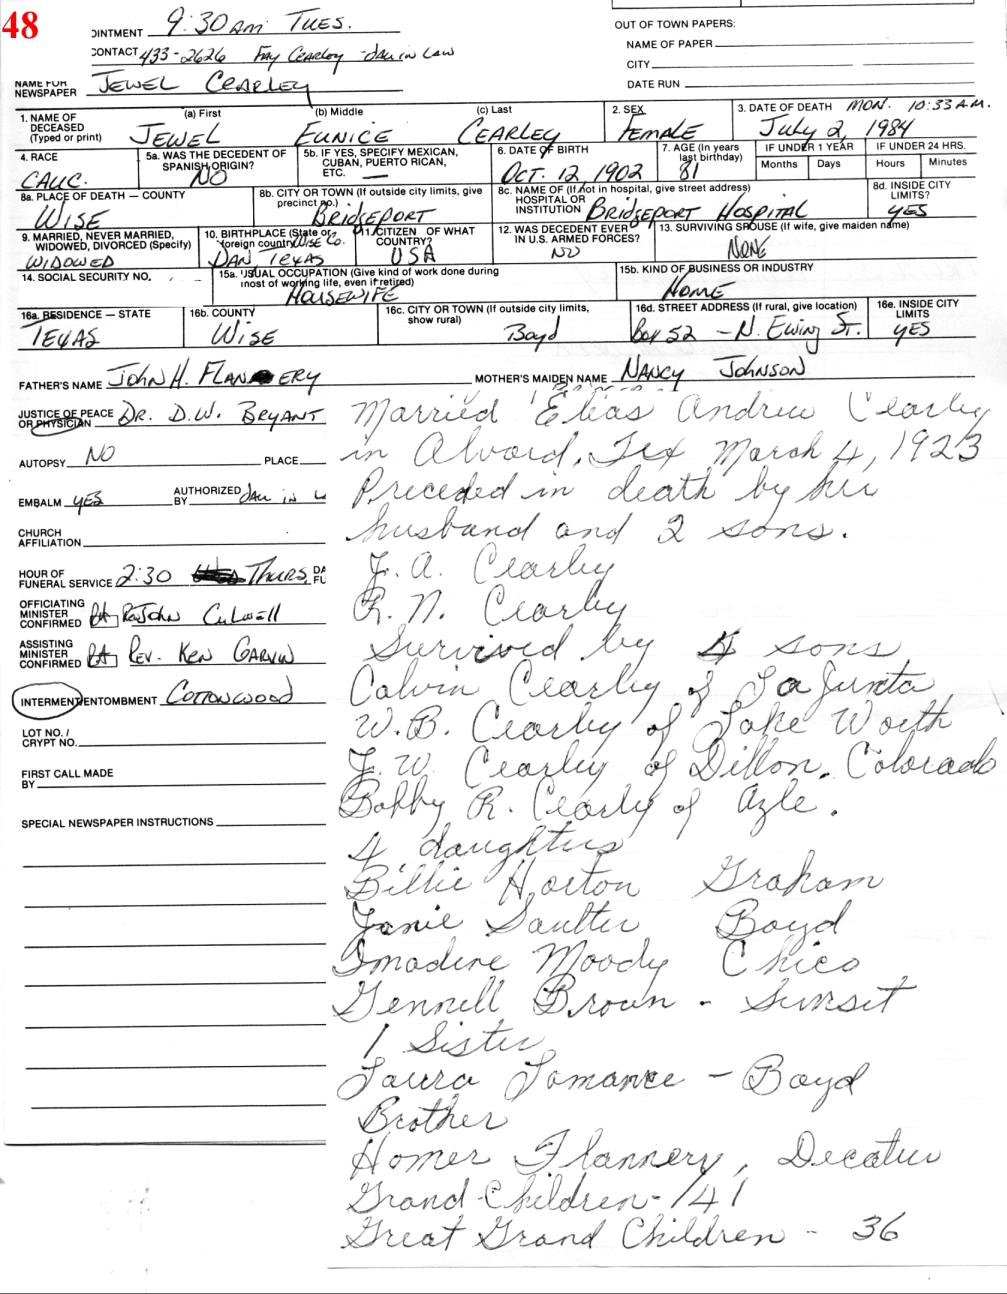 48
OINTMENT 9:30 AM TUES.
CONTACT 433-2626 FAY CEARLEY - DAU IN LAW
NAME FOR NEWSPAPER JEWEL CEARLEY
OUT OF TOWN PAPERS:
NAME OF PAPER
CITY
DATE RUN
1. NAME OF DECEASED (Typed or print) (a) First JEWEL (b) Middle EUNICE (c) Last CEARLEY
2. SEX FEMALE
3. DATE OF DEATH MON. 10:33 A.M. JULY 2, 1984
4. RACE CAUC.
5a. WAS THE DECEDENT OF SPANISH ORIGIN? NO
5b. IF YES, SPECIFY MEXICAN, CUBAN, PUERTO RICAN, ETC. —
6. DATE OF BIRTH OCT. 12, 1902
7. AGE (In years last birthday) 81
IF UNDER 1 YEAR Months Days
IF UNDER 24 HRS. Hours Minutes
8a. PLACE OF DEATH — COUNTY WISE
8b. CITY OR TOWN (If outside city limits, give precinct no.) BRIDGEPORT
8c. NAME OF (If not in hospital, give street address) HOSPITAL OR INSTITUTION BRIDGEPORT HOSPITAL
8d. INSIDE CITY LIMITS? YES
9. MARRIED, NEVER MARRIED, WIDOWED, DIVORCED (Specify) WIDOWED
10. BIRTHPLACE (State or foreign country) WISE CO. DAN TEXAS
11. CITIZEN OF WHAT COUNTRY? USA
12. WAS DECEDENT EVER IN U.S. ARMED FORCES? NO
13. SURVIVING SPOUSE (If wife, give maiden name) NONE
14. SOCIAL SECURITY NO.
15a. USUAL OCCUPATION (Give kind of work done during most of working life, even if retired) HOUSEWIFE
15b. KIND OF BUSINESS OR INDUSTRY HOME
16a. RESIDENCE — STATE TEXAS
16b. COUNTY WISE
16c. CITY OR TOWN (If outside city limits, show rural) Boyd
16d. STREET ADDRESS (If rural, give location) Box 52 - N. Ewing St.
16e. INSIDE CITY LIMITS YES
FATHER'S NAME JOHN H. FLANNERY
MOTHER'S MAIDEN NAME NANCY JOHNSON
JUSTICE OF PEACE OR PHYSICIAN DR. D.W. BRYANT
AUTOPSY NO PLACE
EMBALM YES AUTHORIZED BY DAU IN L
CHURCH AFFILIATION
HOUR OF FUNERAL SERVICE 2:30 THURS. DA FU
OFFICIATING MINISTER CONFIRMED Rev John Culwell
ASSISTING MINISTER CONFIRMED REV. KEN GARVIN
INTERMENT/ENTOMBMENT COTTONWOOD
LOT NO. / CRYPT NO.
FIRST CALL MADE BY
SPECIAL NEWSPAPER INSTRUCTIONS
Married Elias Andrew Cearley
in Alvord, Tex March 4, 1923
Preceded in death by her
husband and 2 sons.
J. A. Cearley
R. N. Cearley
Survived by 4 sons
Calvin Cearley of La Junta
W. B. Cearley of Lake Worth
J. W. Cearley of Dillon, Colorado
Bobby R. Cearly of Azle.
4 daughters
Billie Horton Graham
Janie Saulter Boyd
Imadine Moody Chico
Gennell Brown - Sunset
1 Sister
Laura Lomance - Boyd
Brother
Homer Flannery, Decatur
Grand-Children - 41
Great Grand Children - 36